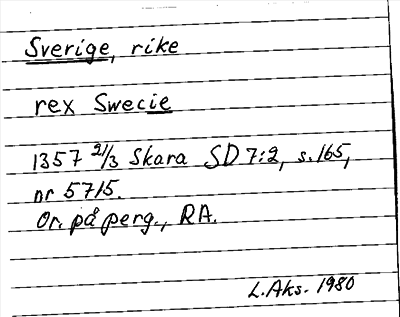 Sverige, rike
rex Swecie
1357 2/3 Skara SD 7:2, s. 165,
nr 5715.
Or. på perg., RA.
L. Aks. 1980